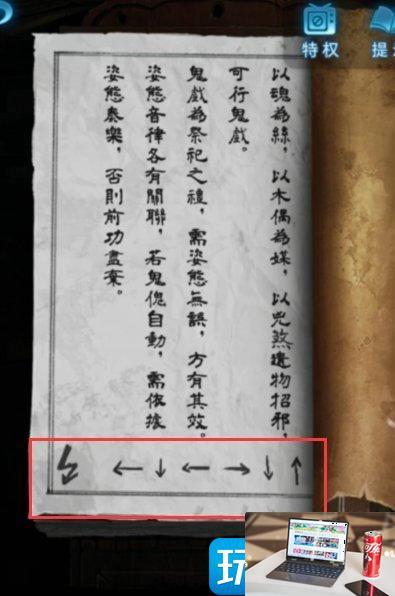 特权
提
以魂為絲，以木偶為媒，以兇煞遺物招邪，
可行鬼戲。
鬼戲為祭祀之禮，需姿態無誤，方有其效。
姿態音律各有關聯，若鬼傀自動，需依據
姿態奏樂，否則前功盡棄。
↑↓→←↓←
玩